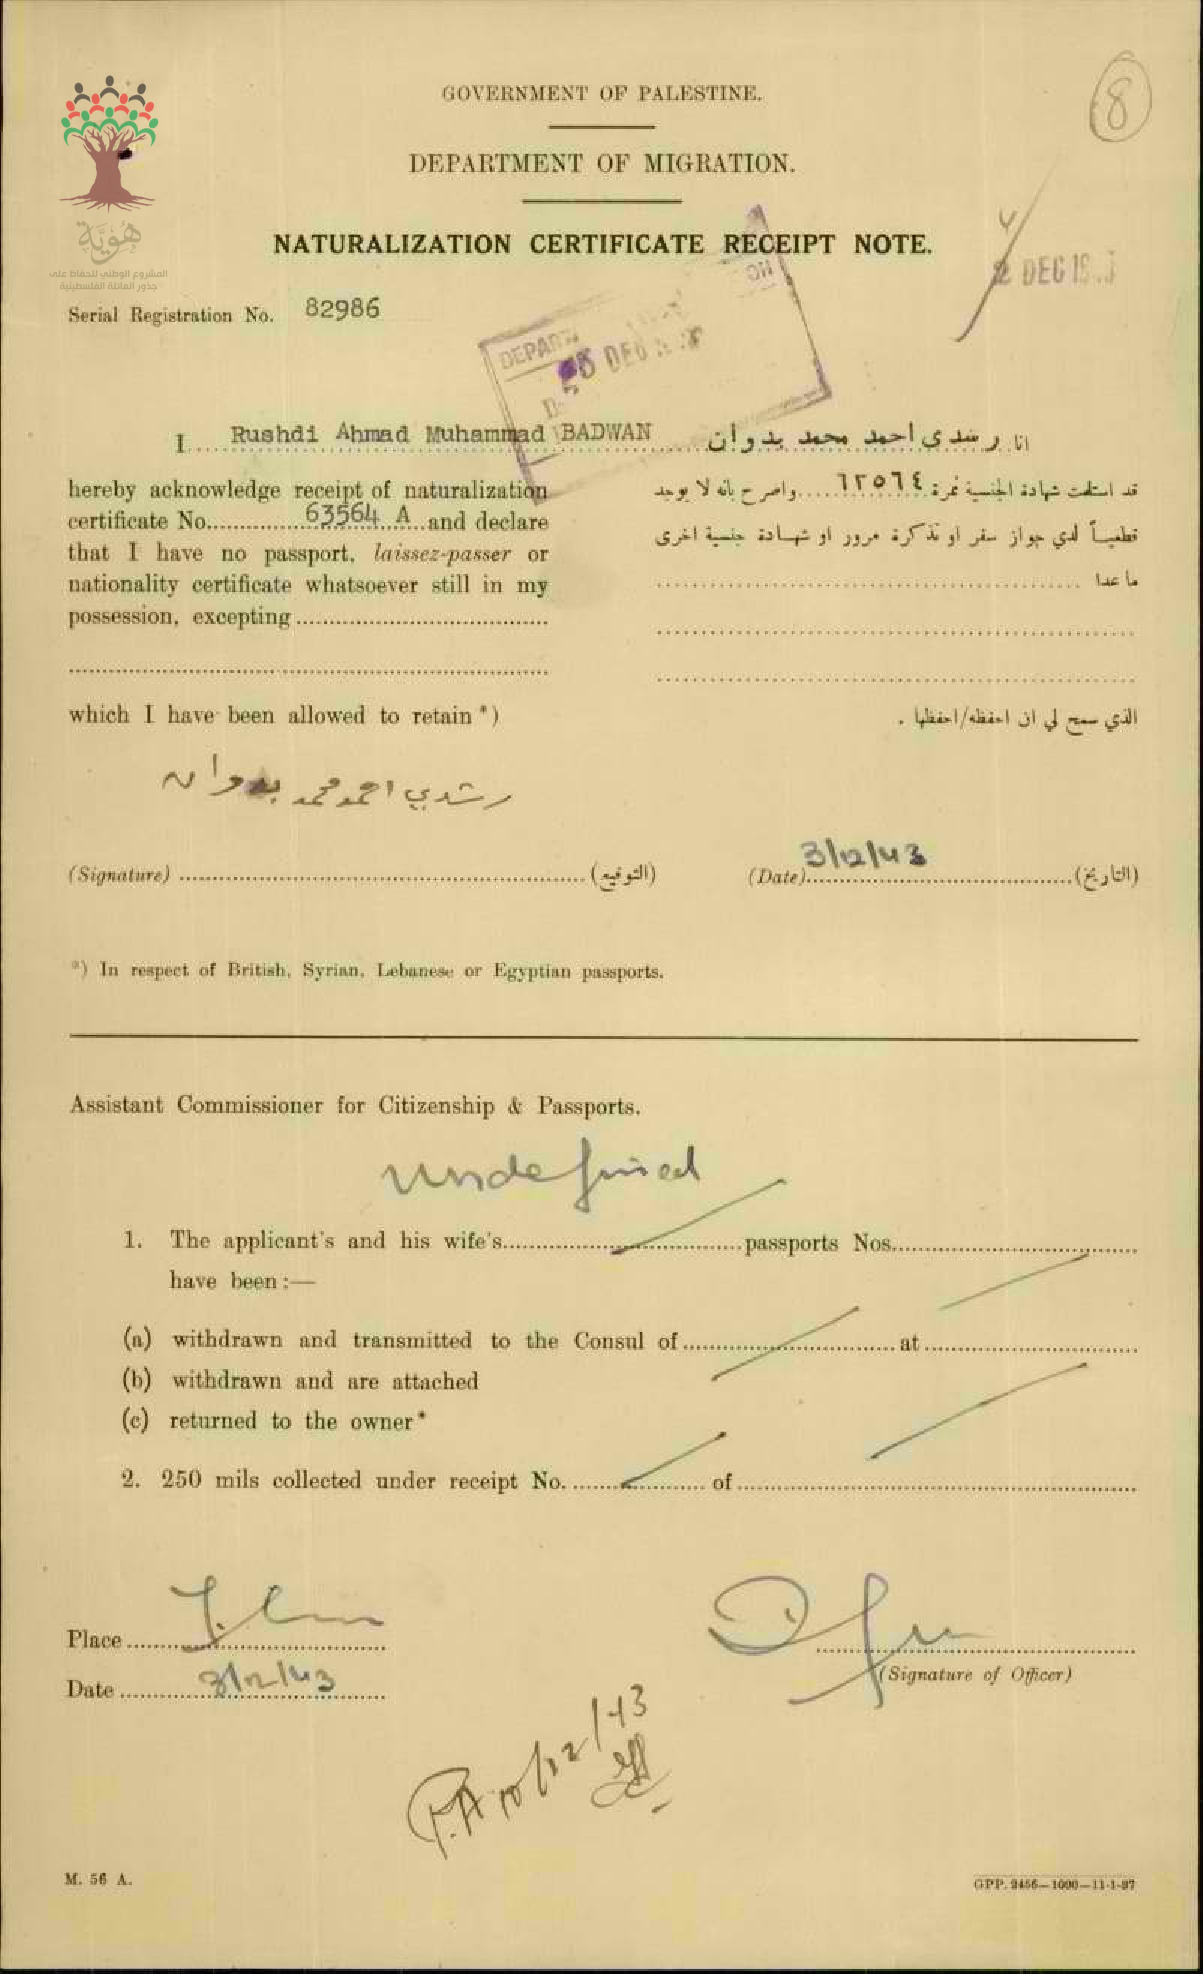 8
GOVERNMENT OF PALESTINE.
DEPARTMENT OF MIGRATION.
NATURALIZATION CERTIFICATE RECEIPT NOTE.
هُوِيَّة
المشروع الوطني للحفاظ على
جذور العائلة الفلسطينية
2 DEC 19
Serial Registration No. 82986
DEPART
DEC
I Rushdi Ahmad Muhammad BADWAN
hereby acknowledge receipt of naturalization
certificate No. 63564 A and declare
that I have no passport, laissez-passer or
nationality certificate whatsoever still in my
possession, excepting
which I have been allowed to retain *)
انا رشدي احمد محمد بدوان
قد استلمت شهادة الجنسية نمرة ٦٣٥٦٤ واصرح بانه لا يوجد
قطعياً لدي جواز سفر او تذكرة مرور او شهادة جنسية اخرى
ما عدا
الذي سمح لي ان احفظه/احفظها .
رشدي احمد محمد بدوان
(Signature) (التوقيع)
(Date) 3/12/43 (التاريخ)
*) In respect of British, Syrian, Lebanese or Egyptian passports.
Assistant Commissioner for Citizenship & Passports.
undefined
1. The applicant's and his wife's passports Nos.
have been :—
(a) withdrawn and transmitted to the Consul of at
(b) withdrawn and are attached
(c) returned to the owner*
2. 250 mils collected under receipt No. of
Place
Date 3/12/43
(Signature of Officer)
P.A 10/12/43
M. 56 A.
GPP. 2456—1000—11-1-37